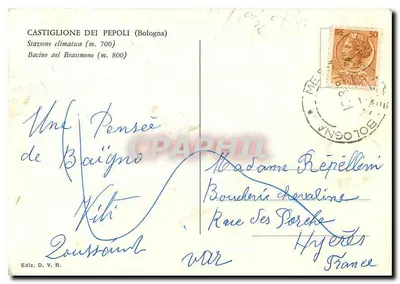 CASTIGLIONE DEI PEPOLI (Bologna)
Stazione climatica (m. 700)
Bacino del Brasimone (m. 800)
Une Pensée
de Baïgno
Kiki
Toussaint
Madame Répellini
Boucherie chevaline
Rue des Porche
Hyères
var
France
Ediz. D. V. B.
BOLOGNA
30
CPAPHIL